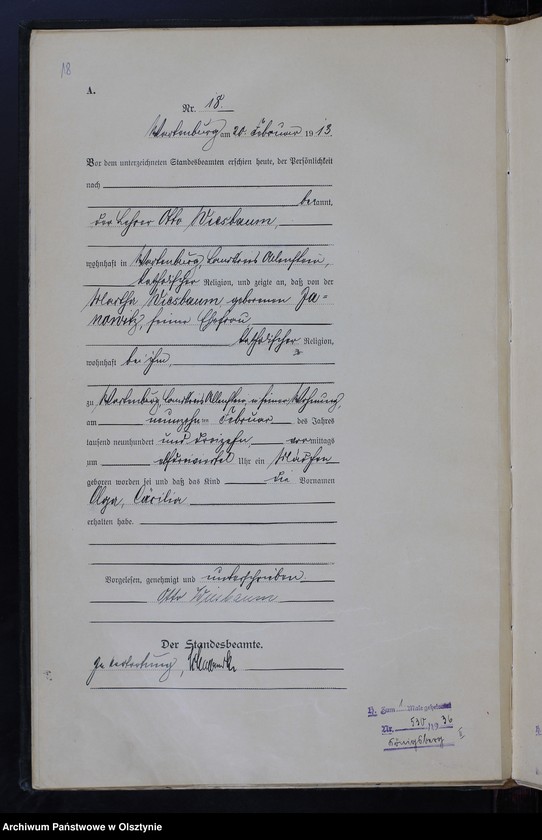 18
A.
Nr. 18.
Wartenburg am 20. Februar 1913.
Vor dem unterzeichneten Standesbeamten erschien heute, der Persönlichkeit
nach
bekannt,
der Lehrer Otto Wiesbaum,
wohnhaft in Wartenburg, Landkreis Allenstein,
katholischer Religion, und zeigte an, daß von der
Martha Wiesbaum geborenen Ja=
nowitz, seiner Ehefrau
katholischer Religion,
wohnhaft bei ihm,
zu Wartenburg Landkreis Allenstein, in seiner Wohnung,
am neunzehnten Februar des Jahres
tausend neunhundert und dreizehn, vormittags
um Uhr ein Mädchen
geboren worden sei und daß das Kind die Vornamen
Olga, Cäcilia
erhalten habe.
Vorgelesen, genehmigt und unterschrieben
Otto Wiesbaum
Der Standesbeamte.
In Vertretung,
H. Zum 1 Male geheiratet
Nr. 530 1936
Königsberg I
Archiwum Państwowe w Olsztynie